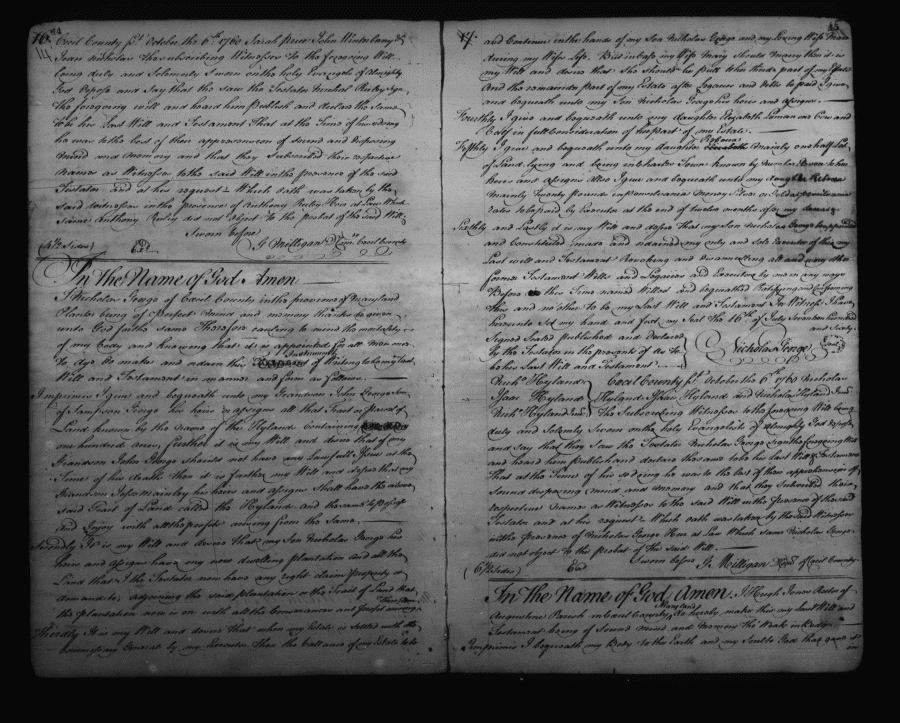 Cecil County sct. October the 6th 1760 Sarah Price John Winterbery &
Jean Nicholas the subscribing Witnesses to the foregoing Will
being duly and Solemnly Sworn on the holy Evangels of Almighty
God Depose and Say that they saw the Testator Sign
the foregoing will and heard him publish and declare the same
to be his Last Will and Testament That at the time of his so doing
he was to the best of their apprehension of sound and disposing
mind and memory and that they subscribed their respective
names as Witnesses to the said Will in the presence of the said
Testator and at his request Which oath was taken by the
said Witnesses in the presence of Anthony Heir at Law Which
same Anthony did not object to the probat of the said Will
Sworn before
G Milligan Cecil County
(4½ Sides)
In the Name of God Amen
I Nicholas George of Cecil County in the province of Maryland
Planter being of perfect mind and memory thanks be given
unto God for the same Therefore calling to mind the mortality
of my body and knowing that it is appointed for all men once
to dye Do make and ordain this Testimony of Writing to be my Last
Will and Testament in manner and form as follows
Imprimis I give and bequeath unto my Grandson John George Son
of Sampson George his heirs & assigns all that Tract or parcel of
Land known by the name of the Hyland Containing
one hundred acres further it is my Will and desire that if my
Grandson John George should not have any Lawfull Issue at the
time of his death then it is further my Will and desire that my
Grandson Jesse Mainley his heirs and assigns Shall have the above
said Tract of Land called the Hyland and the same to possess
and Enjoy with all the profits arising from the same
Secondly It is my Will and desire that my Son Nicholas George his
heirs and assigns have my now dwelling plantation and all the
Land that I the Testator now have any right claim property or
demand to adjoining the said plantation or the Tract of Land that
the plantation now is on with all the Conveniences and profit arising
Thirdly It is my Will and desire that when my Estate is settled with the
Commissary General by my Executor then the ballance of my Estate to be
17 45
and Continue in the hands of my Son Nicholas George and my loving Wife Mary
during my Wifes Life. But in Case my Wife Mary Should Marry then it is
my Will and desire that She should be paid the thirds part of my Estate
And the remainder part of my Estate after Legacies and debts be paid I give
and bequeath unto my Son Nicholas George his heirs and assigns
Fourthly I give and bequeath unto my daughter Elizabeth Laman one Cow and
Calf in full Consideration of her part of my Estate
Fifthly I give and bequeath unto my daughter Rebecca Mainley one half Lot
of Land lying and being in Charles Town known by number to her
heirs and assigns Also I give and bequeath unto my daughter Rebecca
Mainley Twenty Pounds in pennsilvania money
rates to be paid by Executor at the end of twelve months after my decease
Sixthly and Lastly it is my Will and desire that my Son Nicholas George be appointed
and Constituted made and ordained my only and Sole Executor of this my
Last will and Testament Revoking and disannulling all and any other
former Testament Wills and Legacies and Executors by me in any ways
Before this time named Willed and bequeathed Ratifying and Confirming
this and no other to be my Last Will and Testament In Witness I have
hereunto set my hand and fixt my Seal the 16th of July Seventeen hundred
and Sixty.
Signed Sealed published and Declared
by the Testator in the presence of us to
be his Last Will and Testament
Nicholas George (Seal)
Nichs Hyland
Isaac Hyland
Nichs Hyland Junr
Cecil County sct. October the 6th 1760 Nicholas
Hyland Isaac Hyland and Nicholas Hyland Junr
The Subscribing Witnesses to the foregoing Will being
duly and Solemnly Sworn on the holy Evangelists of Almighty God Depose
and Say that they Saw the Testator Nicholas George Sign the foregoing Will
and heard him publish and declare the same to be his last Will & Testament
That at the time of his so doing he was to the best of their apprehension of
Sound disposing mind and memory and that they Subscribed their
respective names as Witnesses to the said Will in the presence of the said
Testator and at his request Which oath was taken by the said Witnesses
in the presence of Nicholas George Heir at Law Which same Nicholas George
did not object to the probat of the said Will
Sworn before G. Milligan of Cecil County
(6½ Sides)
In the Name of God Amen I Hugh Jones Rector of
Augustine Parish in Cecil County Maryland do hereby make this my last Will and
Testament being of Sound Mind and Memory tho Weak in Body
Imprimis I bequeath my Body to the Earth and my Soul to God that gave it
in